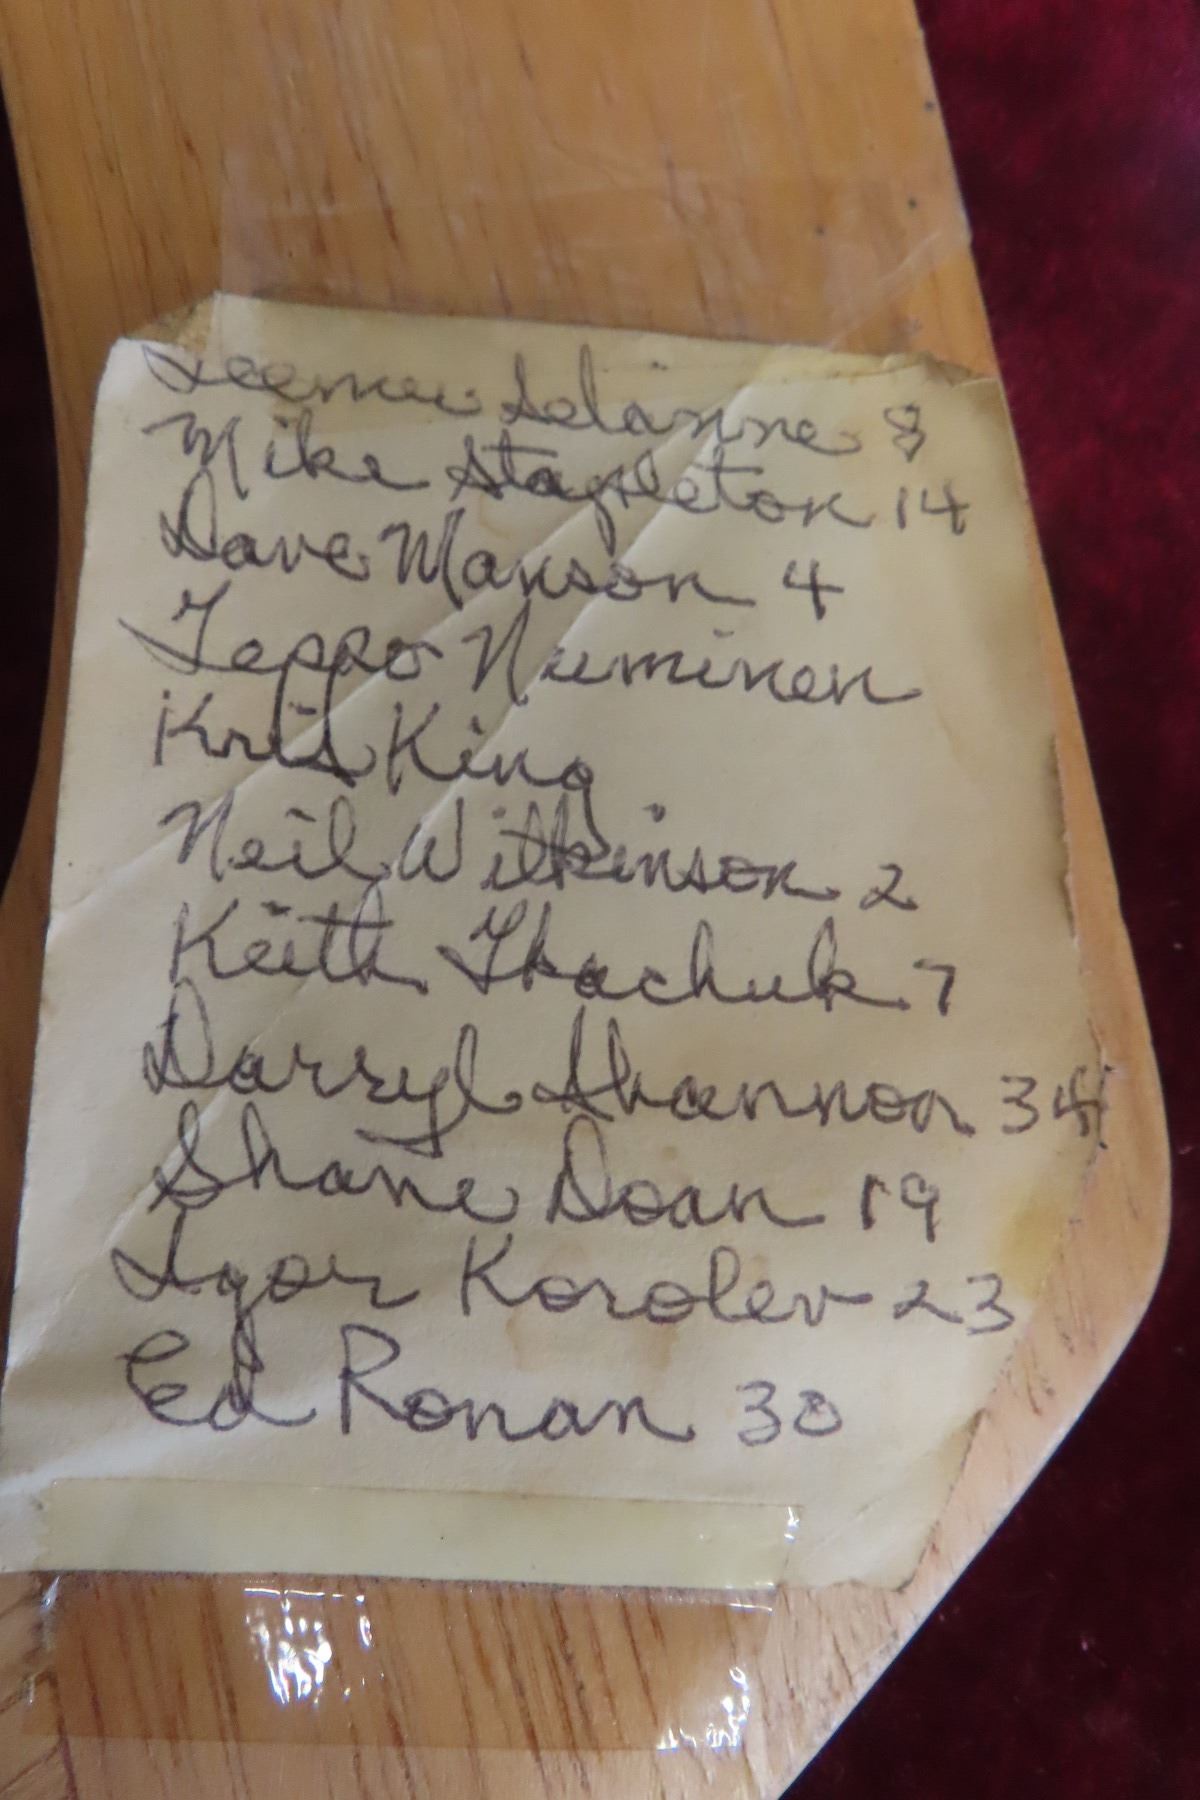 Teemu Selanne 8
Mike Stapleton 14
Dave Manson 4
Teppo Numinen
Kris King
Neil Wilkinson 2
Keith Tkachuk 7
Darryl Shannon 34
Shane Doan 19
Igor Korolev 23
Ed Ronan 30